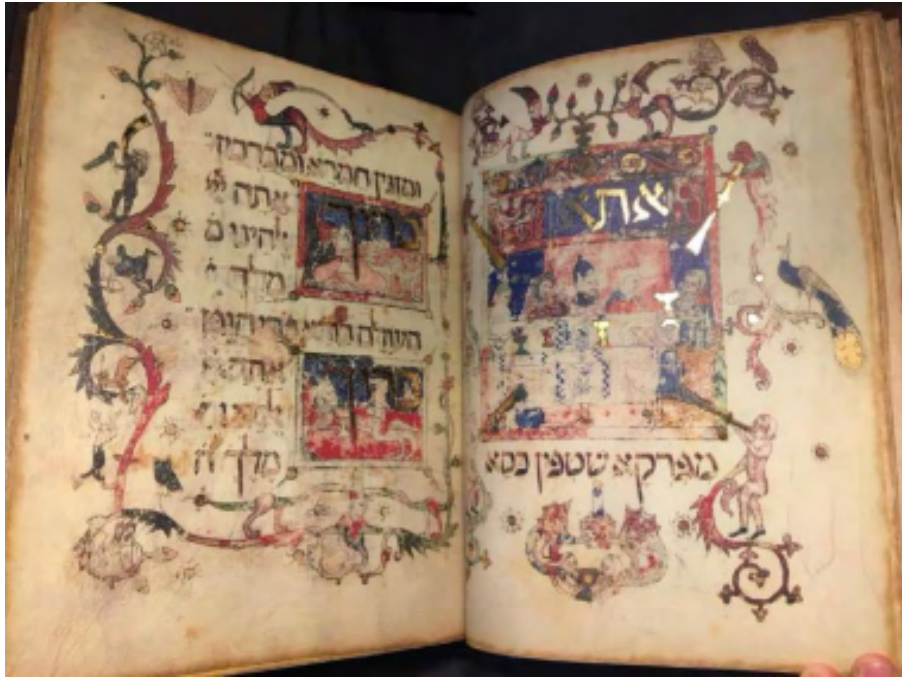 אתא
מפרקא שטפין כסא
ומזגין חמרא ומברכין
ברוך אתה יי
אלהינו
מלך ה
העולם בורא פרי הגפן
ברוך אתה יי
אלהינו
מלך ה